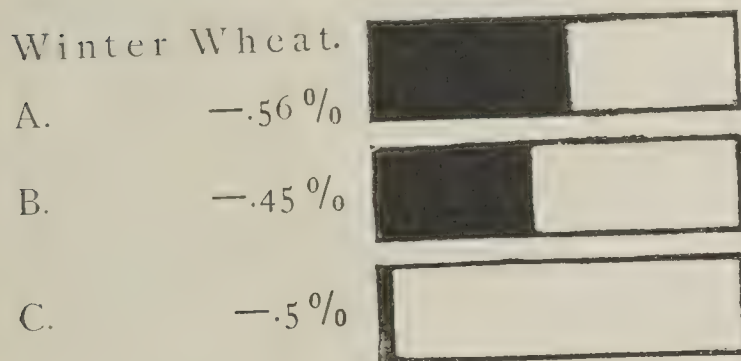 Winter Wheat.
A. —.56 %
B. —.45 %
C. —.5 %